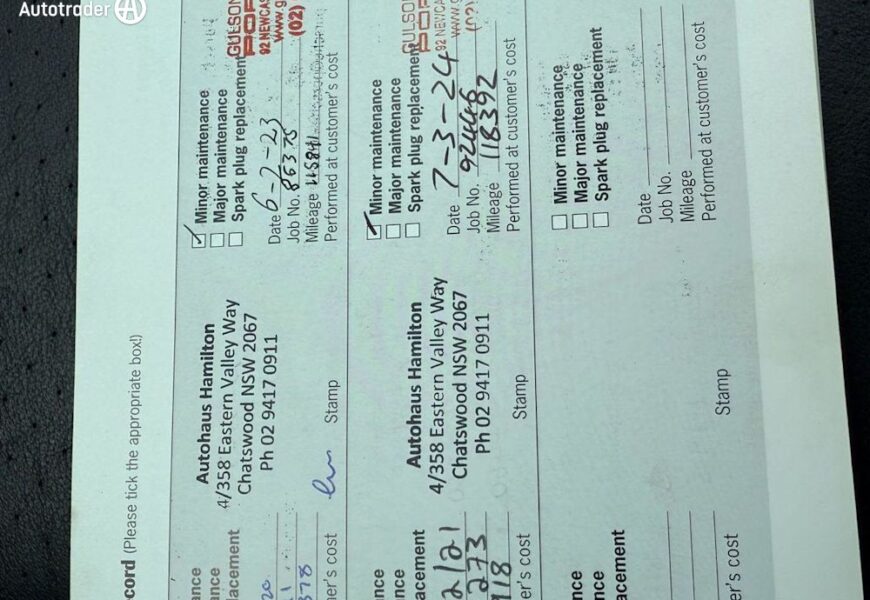 Autotrader
cord (Please tick the appropriate box!)
ance
ance
lacement
378
er's cost
Autohaus Hamilton
4/358 Eastern Valley Way
Chatswood NSW 2067
Ph 02 9417 0911
Stamp
Minor maintenance
Major maintenance
Spark plug replacement
Date 6-2-23
Job No. 86375
Mileage
Performed at customer's cost
GULSON
POR
92 NEWCAS
www.g
(02)
nce
ance
acement
2/21
273
918
er's cost
Autohaus Hamilton
4/358 Eastern Valley Way
Chatswood NSW 2067
Ph 02 9417 0911
Stamp
Minor maintenance
Major maintenance
Spark plug replacement
Date 7-3-24
Job No. 92446
Mileage 118392
Performed at customer's cost
GULSON
POR
92 NEWCA
www.g
(02)
nce
ance
acement
er's cost
Stamp
Minor maintenance
Major maintenance
Spark plug replacement
Date
Job No.
Mileage
Performed at customer's cost